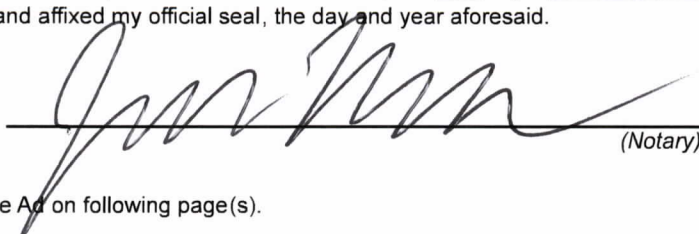 and affixed my official seal, the day and year aforesaid.
(Notary)
e Ad on following page(s).